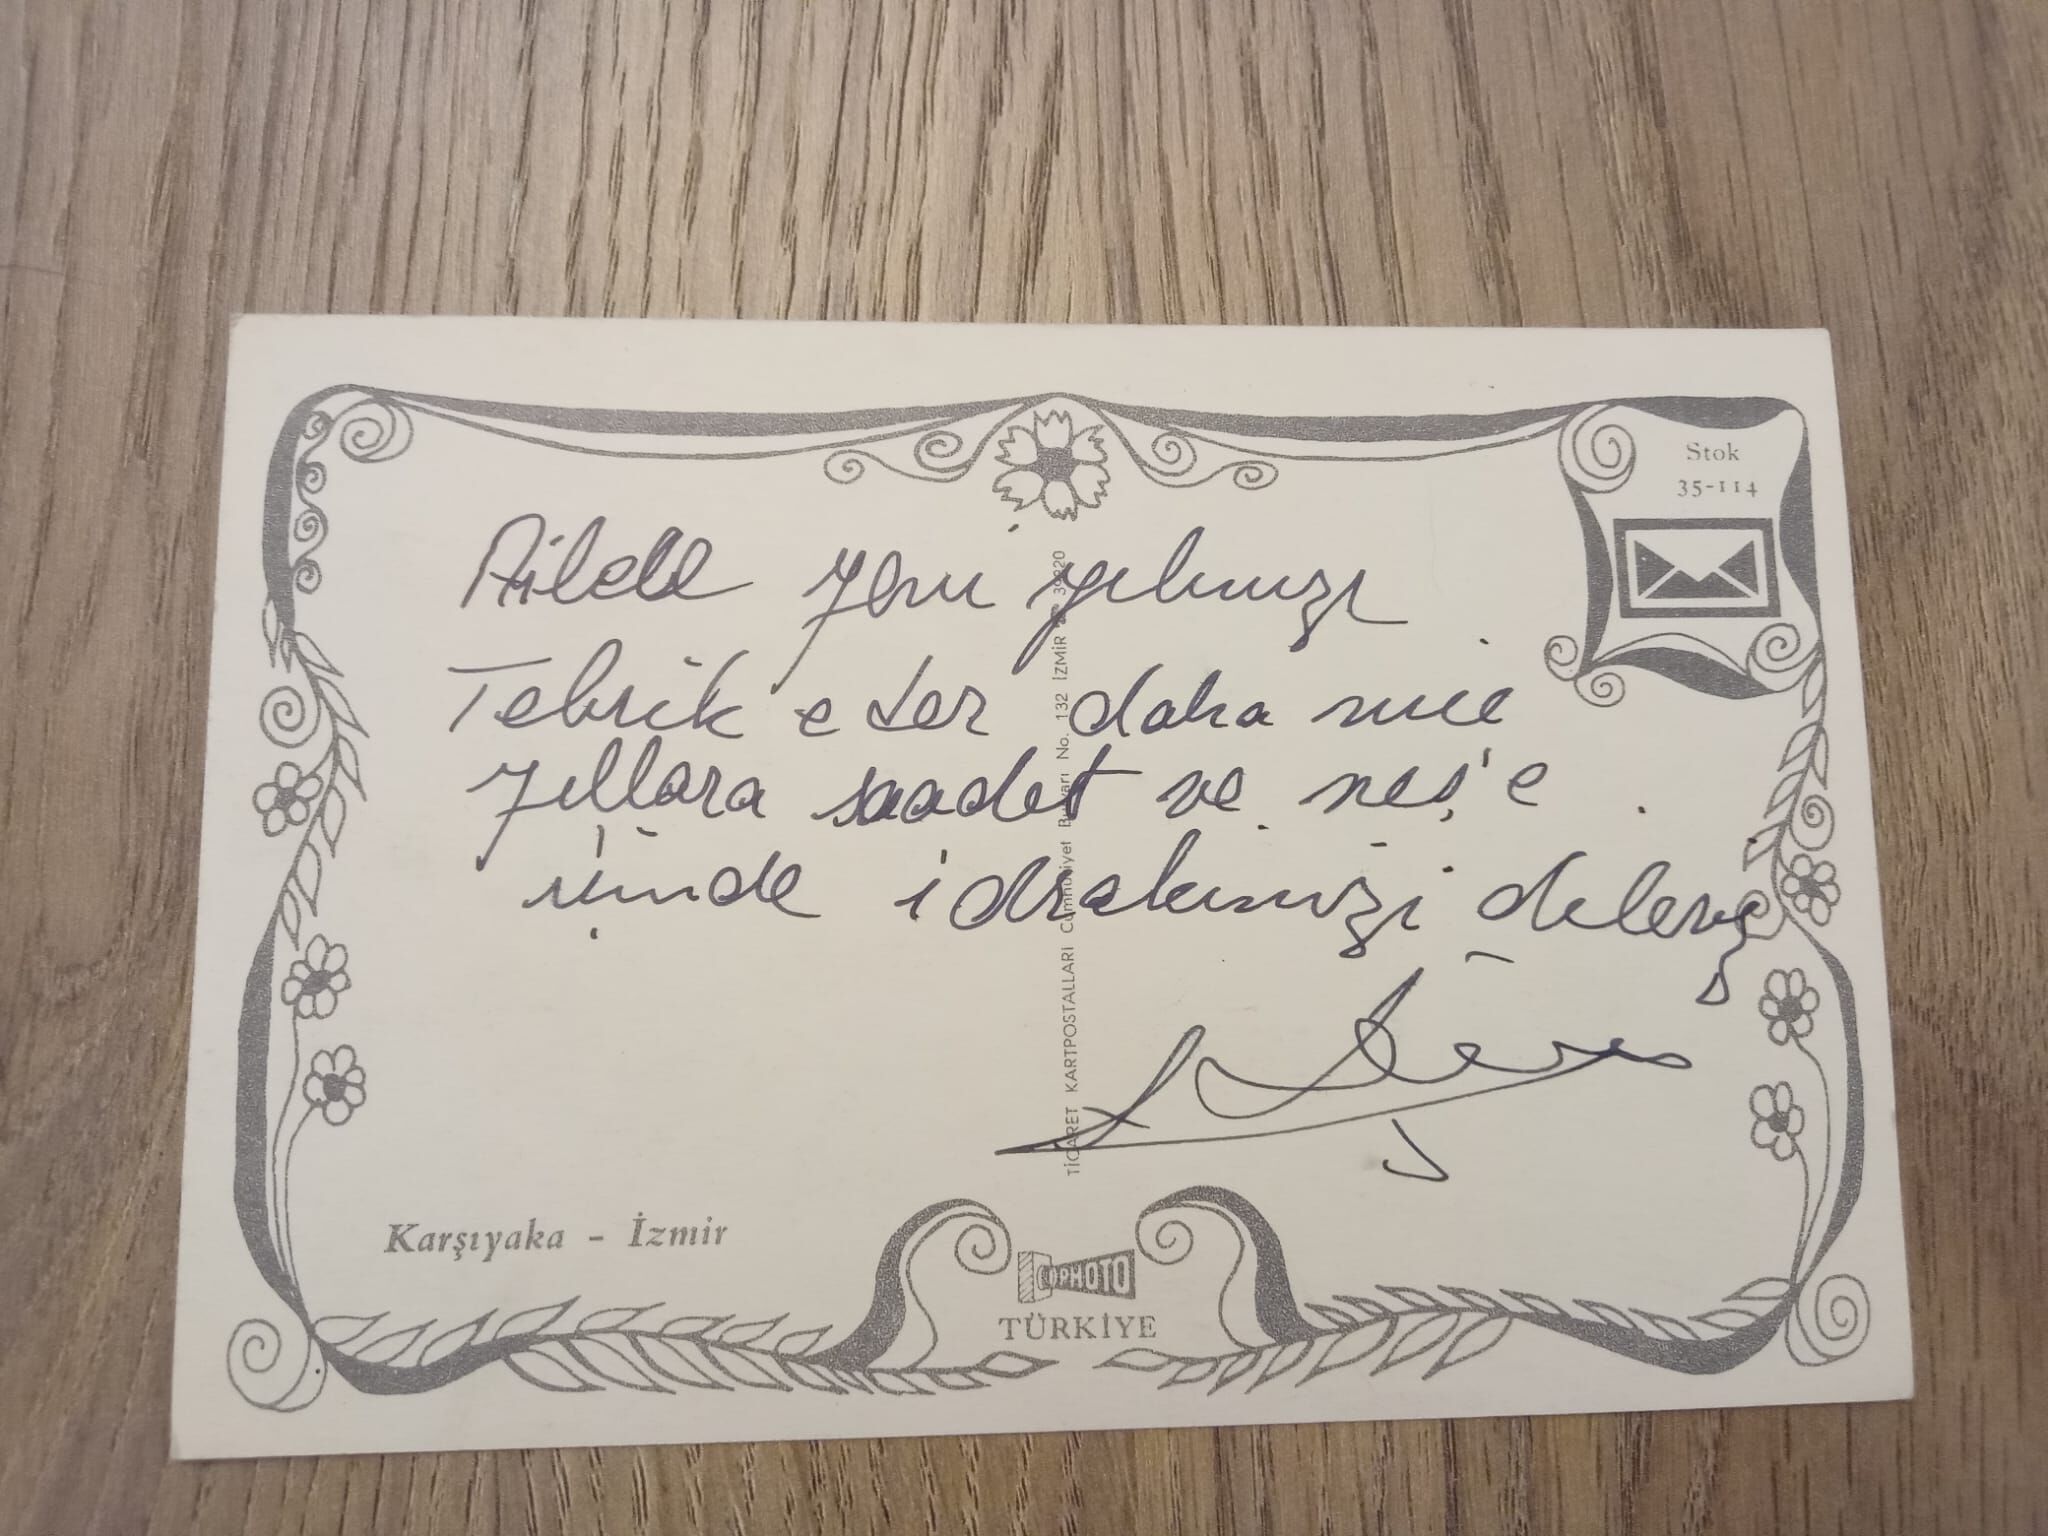 Stok
35-114
Ailece yeni yılınızı
Tebrik eder daha nice
yıllara saadet ve neş'e
içinde idrakinizi dilerız
TİCARET KARTPOSTALLARI Cumhuriyet Bulvarı No. 132 İZMİR
Karşıyaka - İzmir
COPHOTO
TÜRKİYE